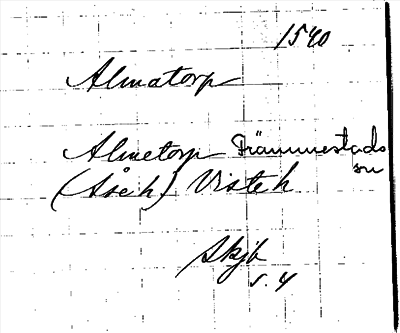 1540
Almatorp
Almetorp Främmestads
sn
(Åse h) Viste h
Skjb
s. 4